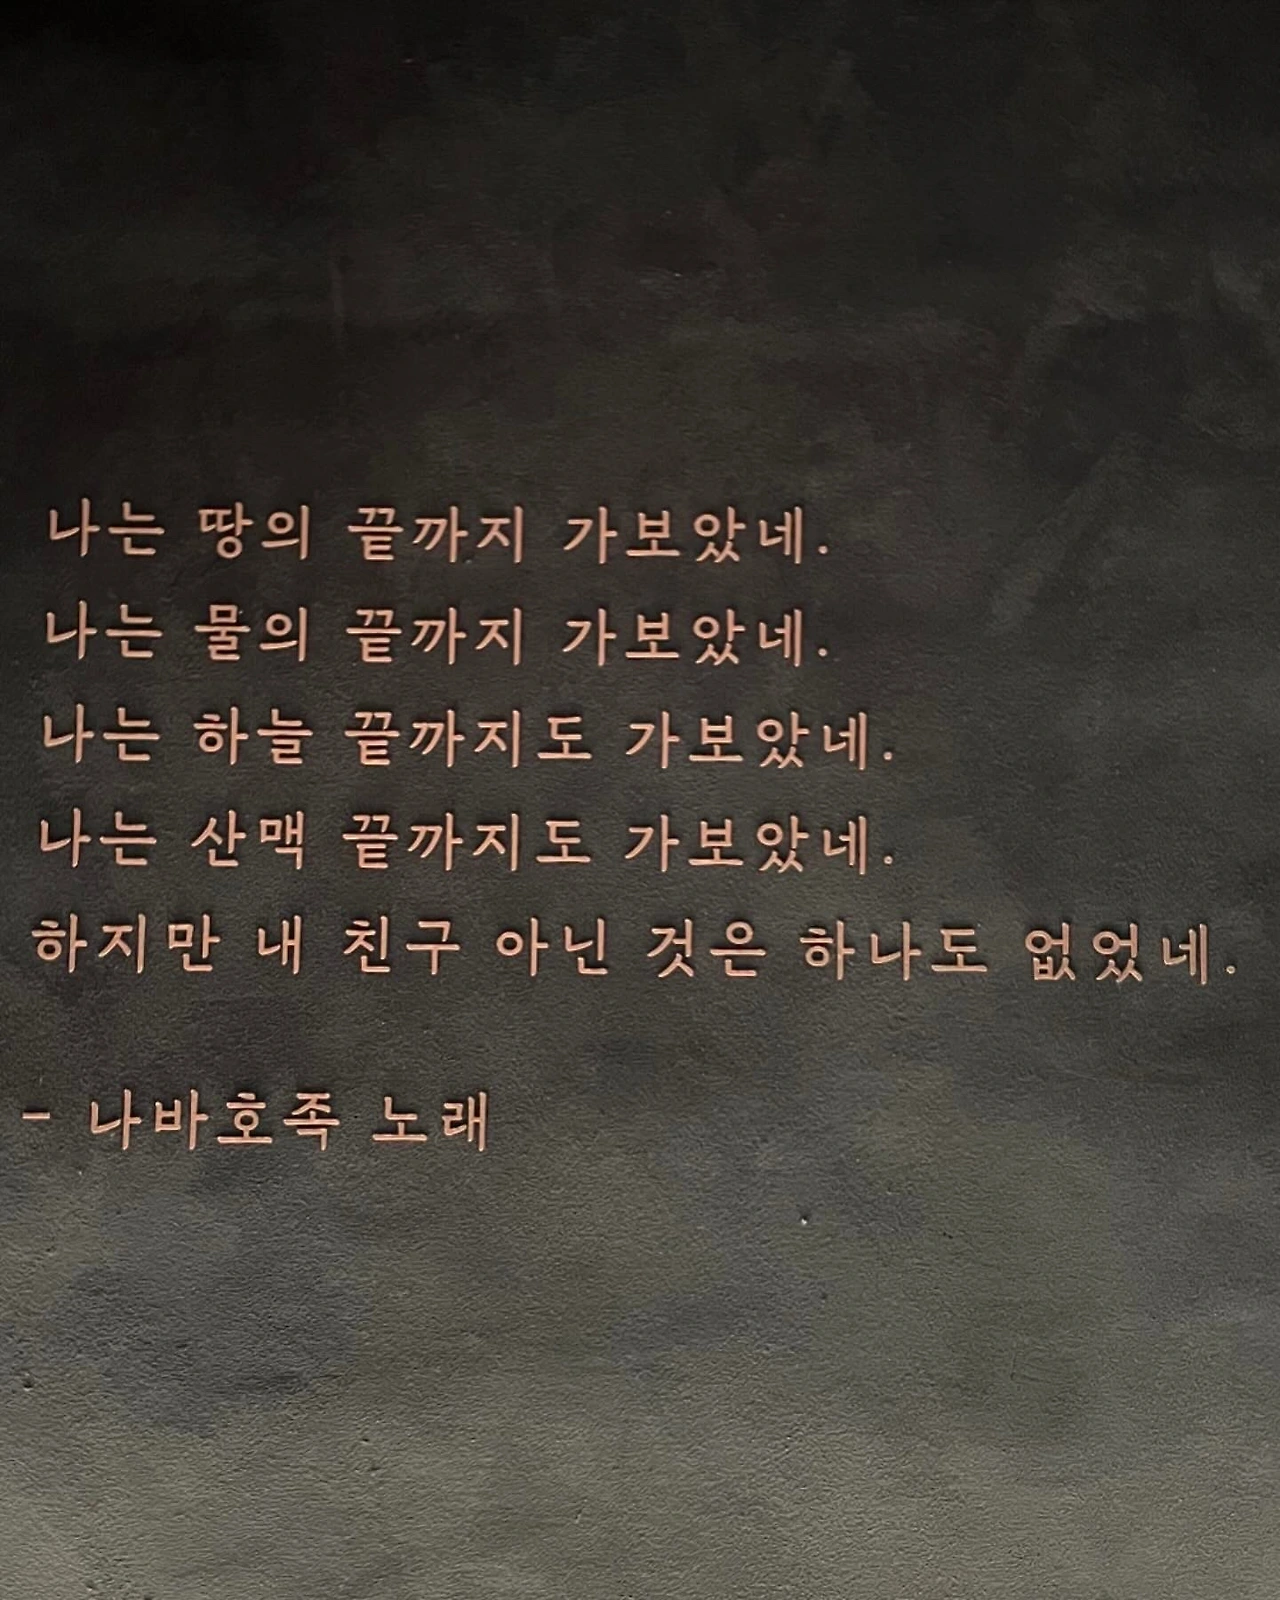 나는 땅의 끝까지 가보았네.
나는 물의 끝까지 가보았네.
나는 하늘 끝까지도 가보았네.
나는 산맥 끝까지도 가보았네.
하지만 내 친구 아닌 것은 하나도 없었네.
- 나바호족 노래